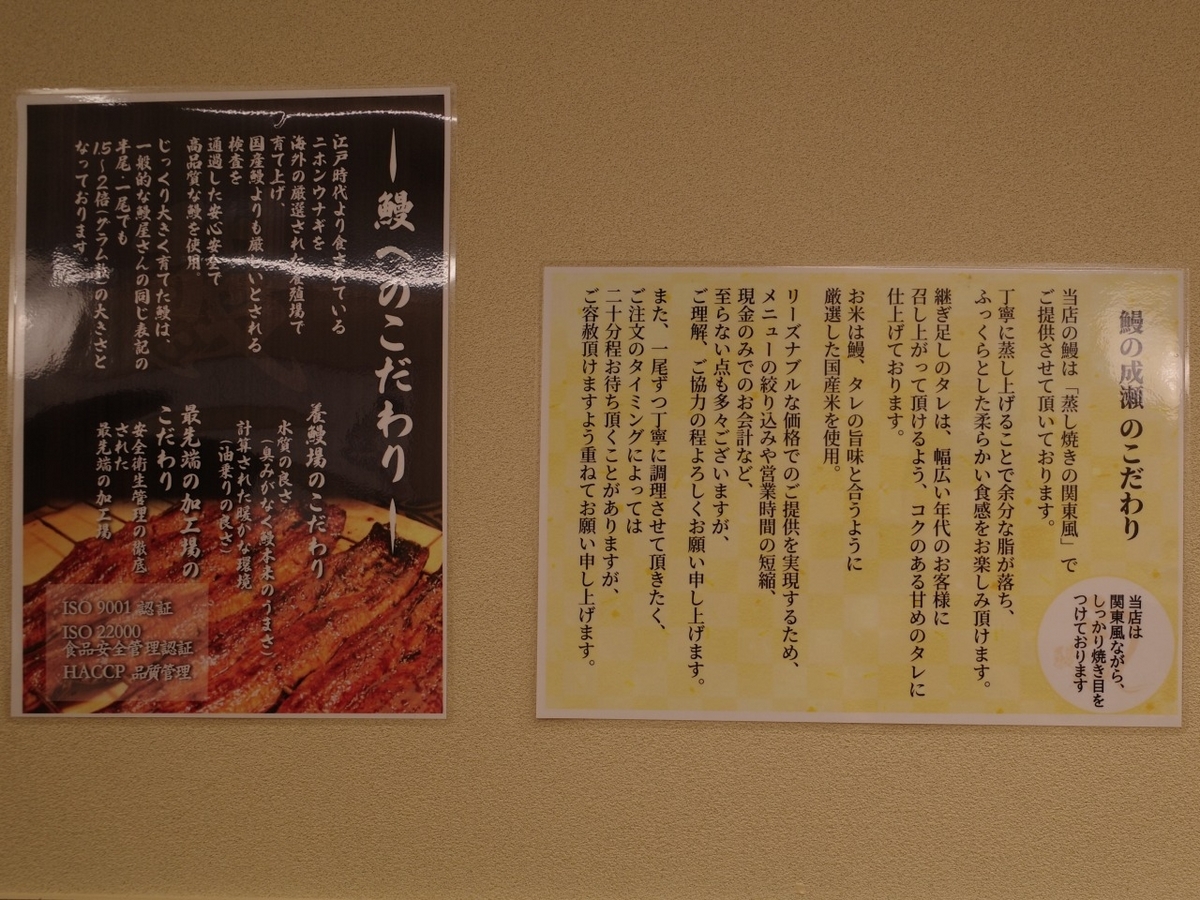 ー鰻へのこだわりー
江戸時代より食されている
ニホンウナギを
海外の厳選された養殖場で
育て上げ、
国産鰻よりも厳しいとされる
検査を
通過した安心安全で
高品質な鰻を使用。
じっくり大きく育てた鰻は、
一般的な鰻屋さんの同じ表記の
半尾・一尾でも
1.5〜2倍(グラム数)の大きさと
なっております。
養鰻場のこだわり
水質の良さ
(臭みがなく鰻本来のうまさ)
計算された暖かな環境
(油乗りの良さ)
最先端の加工場の
こだわり
安全衛生管理の徹底
された
最先端の加工場
ISO 9001 認証
ISO 22000
食品安全管理認証
HACCP 品質管理
鰻の成瀬 のこだわり
当店の鰻は「蒸し焼きの関東風」で
ご提供させて頂いております。
丁寧に蒸し上げることで余分な脂が落ち、
ふっくらとした柔らかい食感をお楽しみ頂けます。
継ぎ足しのタレは、幅広い年代のお客様に
召し上がって頂けるよう、コクのある甘めのタレに
仕上げております。
お米は鰻、タレの旨味と合うように
厳選した国産米を使用。
リーズナブルな価格でのご提供を実現するため、
メニューの絞り込みや営業時間の短縮、
現金のみでのお会計など、
至らない点も多々ございますが、
ご理解、ご協力の程よろしくお願い申し上げます。
また、一尾ずつ丁寧に調理させて頂きたく、
ご注文のタイミングによっては
二十分程お待ち頂くことがありますが、
ご容赦頂けますよう重ねてお願い申し上げます。
当店は
関東風ながら、
しっかり焼き目を
つけております